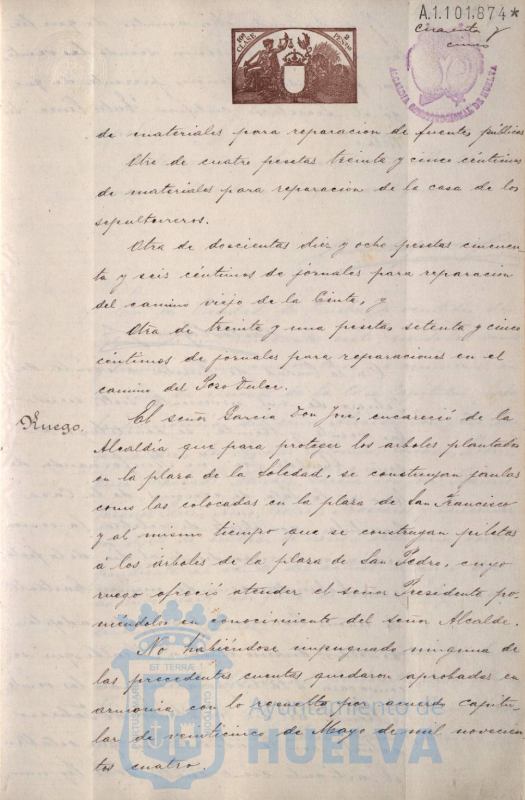 A.1.101.874*
cuarenta y
cinco
10ª CLASE 2 PESETAS
ALCALDIA CONSTITUCIONAL DE HUELVA
de materiales para reparacion de fuentes públicas
Otra de cuatro pesetas treinta y cinco céntimos
de materiales para reparacion de la casa de los
sepultureros.
Otra de doscientas diez y ocho pesetas cincuen-
ta y seis céntimos de jornales para reparacion
del camino viejo de la Cinta, y
Otra de treinta y una pesetas, setenta y cinco
céntimos de jornales para reparaciones en el
camino del Poso dulce.
Ruego.
El señor Garcia Don José, encareció de la
Alcaldia que para proteger los arboles plantados
en la plaza de la Soledad, se construyan jaulas
como las colocadas en la plaza de San Francisco
y al mismo tiempo que se construyan piletas
á los árboles de la plaza de San Pedro, cuyo
ruego ofreció atender el señor Presidente po-
niéndolos en conocimiento del señor Alcalde.
No habiéndose impugnado ninguna de
las precedentes cuentas quedaron aprobadas en
armonia con lo resuelto por acuerdo capitu-
lar de veinticinco de Mayo de mil novecien-
tos cuatro.
Ayuntamiento de
HUELVA